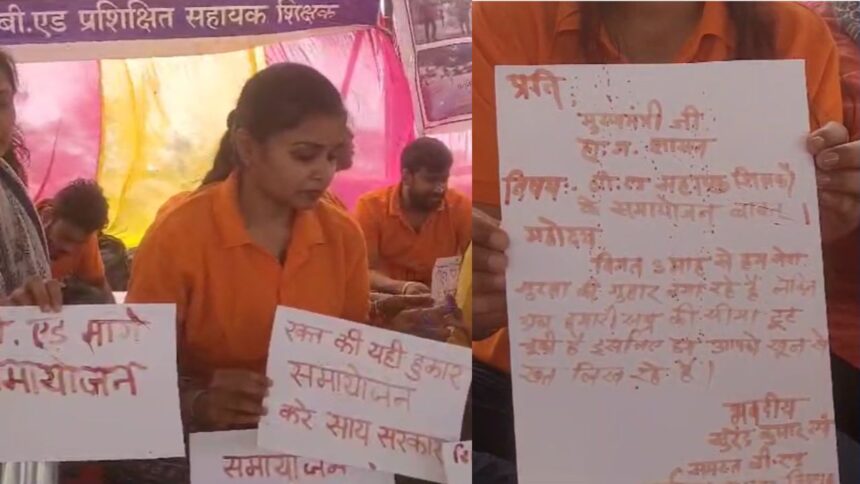 बी.एड प्रशिक्षित सहायक शिक्षक
. एड मांगे
मायोजन
रक्त की यही हुंकार
समायोजन
करे साय सरकार
समायोजन
प्रति,
मुख्यमंत्री जी
छ. ग. शासन
विषय:- बी.एड सहायक शिक्षकों
के समायोजन बाबत।
महोदय
विगत 3 माह से हम सेवा
सुरक्षा की गुहार लगा रहे हैं लेकिन
अब हमारी सब्र की सीमा टूट
चुकी है इसलिए हम आपको खून से
खत लिख रहे हैं।
भवदीय
सुरेन्द्र कुमार
समस्त बी.एड